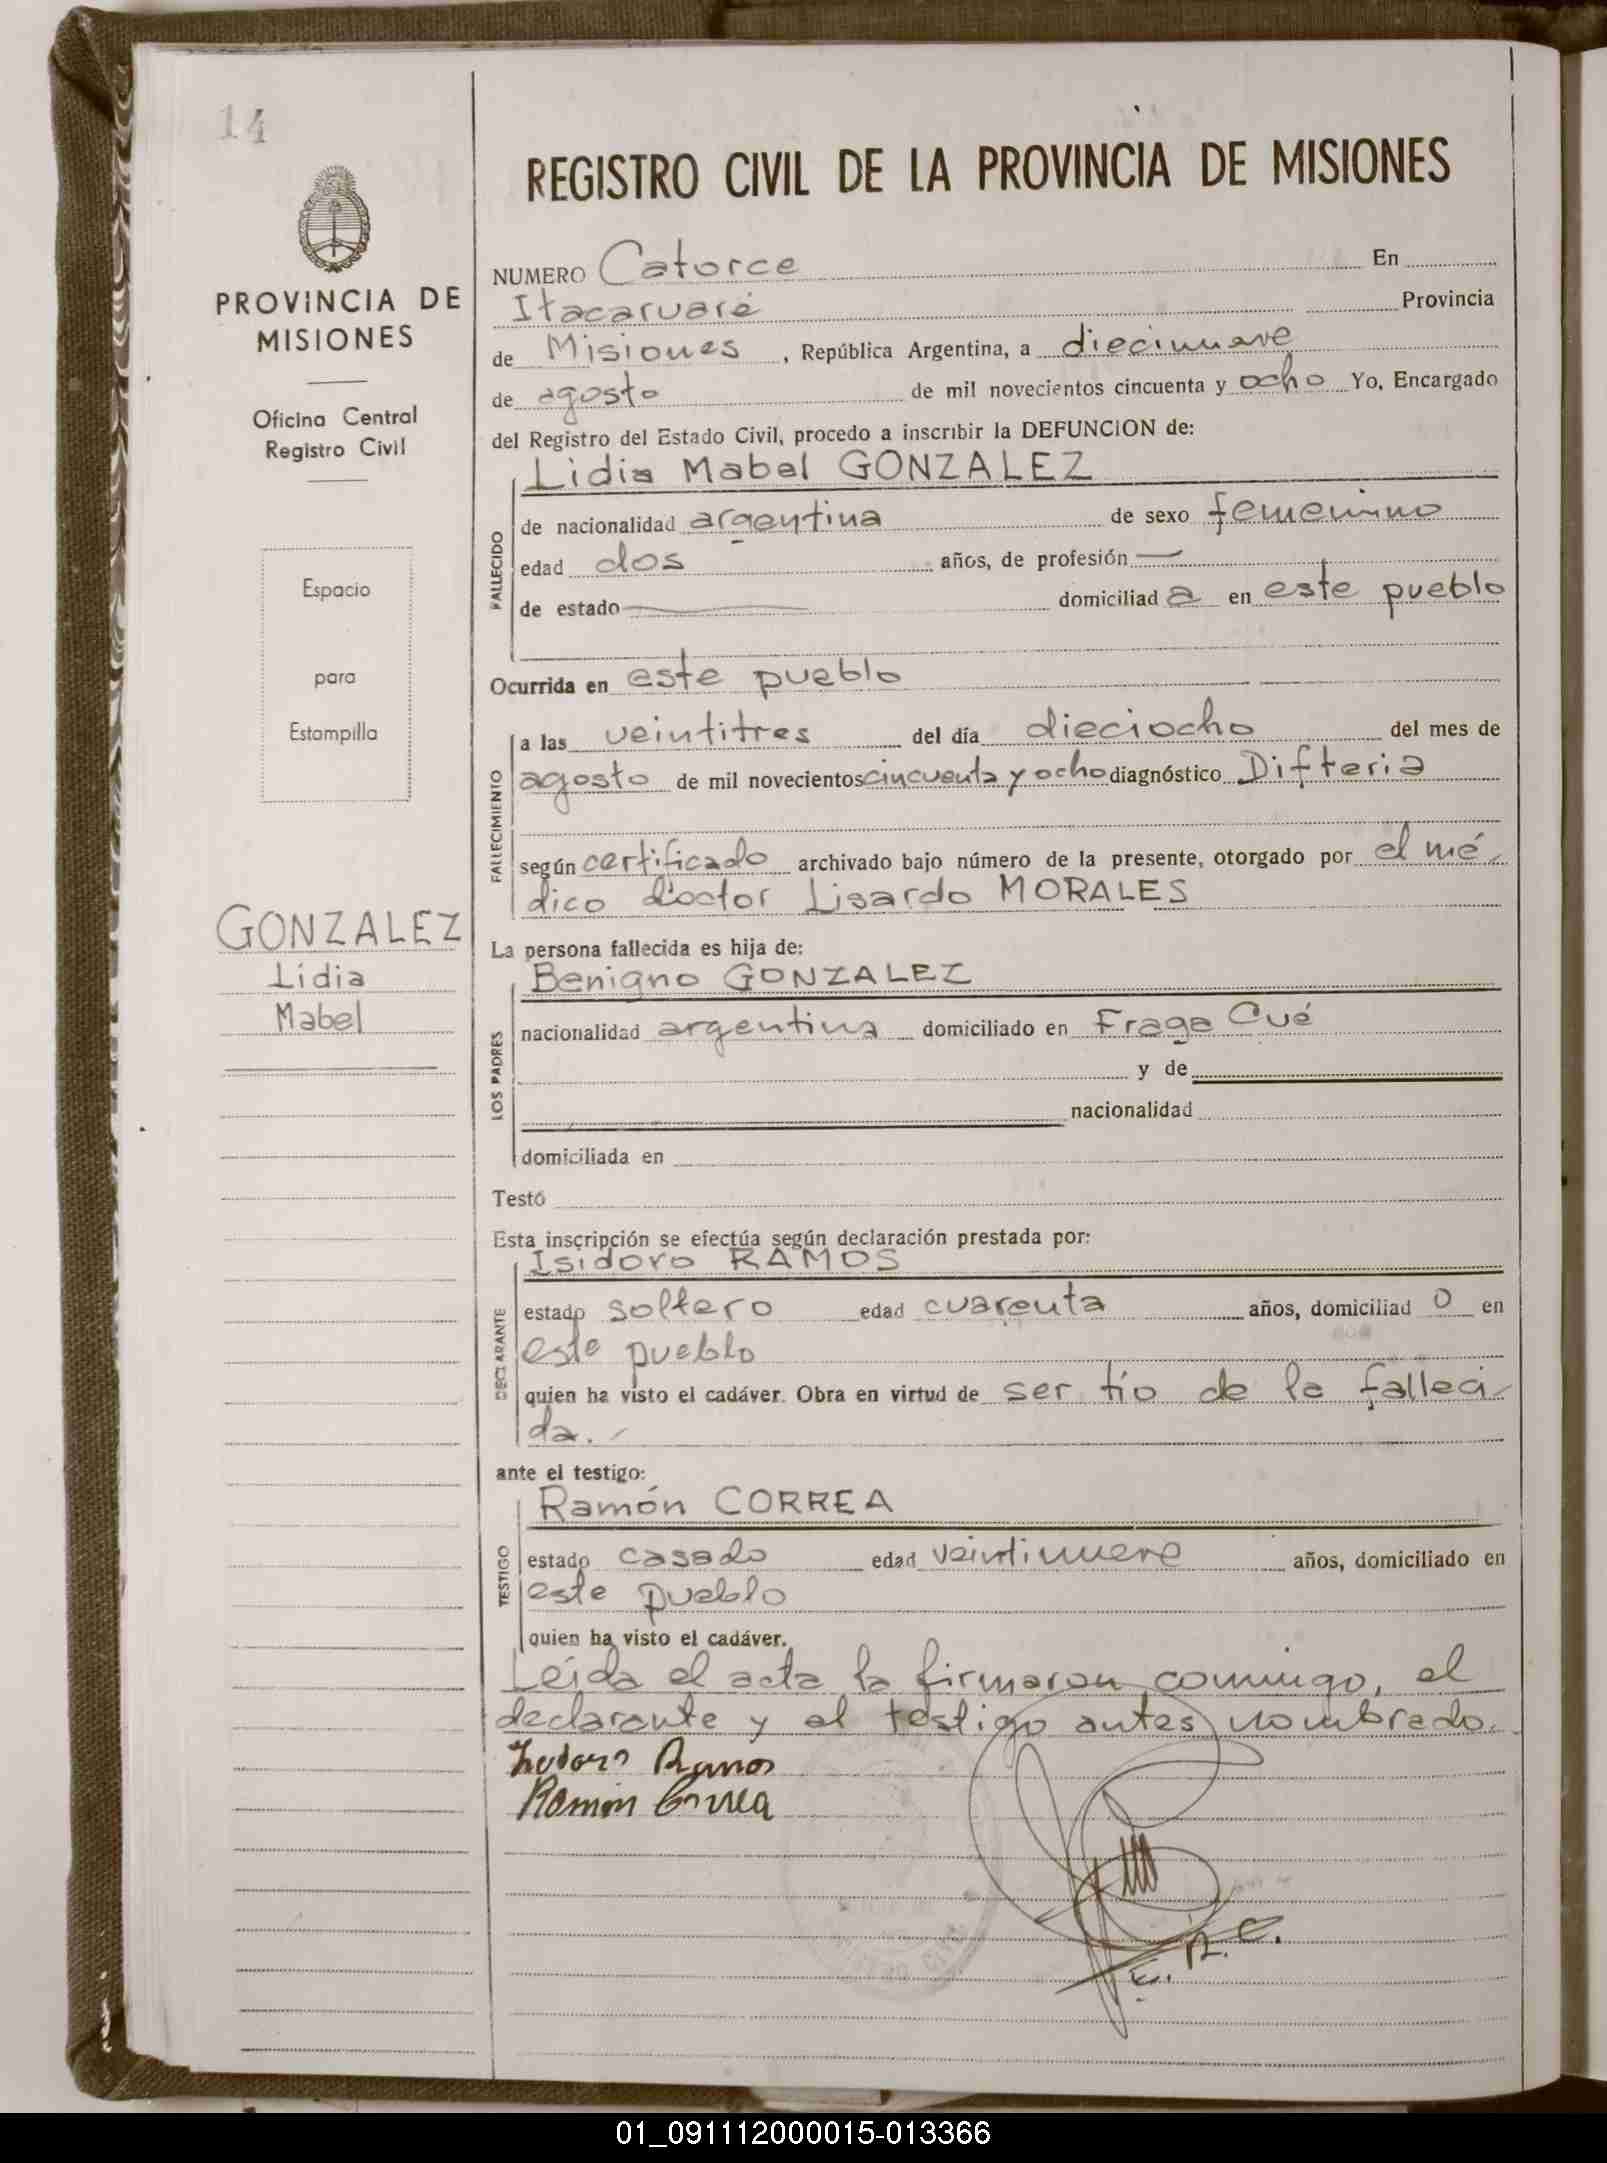 14
PROVINCIA DE
MISIONES
Oficina Central
Registro Civil
Espacio
para
Estampilla
GONZALEZ
Lidia
Mabel
REGISTRO CIVIL DE LA PROVINCIA DE MISIONES
NUMERO Catorce En
Itacaruaré Provincia
de Misiones, República Argentina, a diecinueve
de agosto de mil novecientos cincuenta y ocho Yo, Encargado
del Registro del Estado Civil, procedo a inscribir la DEFUNCION de:
FALLECIDO
Lidia Mabel GONZALEZ
de nacionalidad argentina de sexo femenino
edad dos años, de profesión —
de estado — domiciliad a en este pueblo
Ocurrida en este pueblo
FALLECIMIENTO
a las veintitres del día dieciocho del mes de
agosto de mil novecientos cincuenta y ocho diagnóstico Difteria
según certificado archivado bajo número de la presente, otorgado por el mé-
dico doctor Lisardo MORALES
La persona fallecida es hija de:
LOS PADRES
Benigno GONZALEZ
nacionalidad argentina domiciliado en Fraga Cué
y de
nacionalidad
domiciliada en
Testó
Esta inscripción se efectúa según declaración prestada por:
DECLARANTE
Isidoro RAMOS
estado soltero edad cuarenta años, domiciliad o en
este pueblo
quien ha visto el cadáver. Obra en virtud de ser tío de la falleci-
da.-
ante el testigo:
TESTIGO
Ramón CORREA
estado casado edad veintinueve años, domiciliado en
este pueblo
quien ha visto el cadáver.
Leida el acta la firmaron conmigo, el
declarante y el testigo antes nombrado.
Isidoro Ramos
Ramon Correa
E. R. C.
01_091112000015-013366